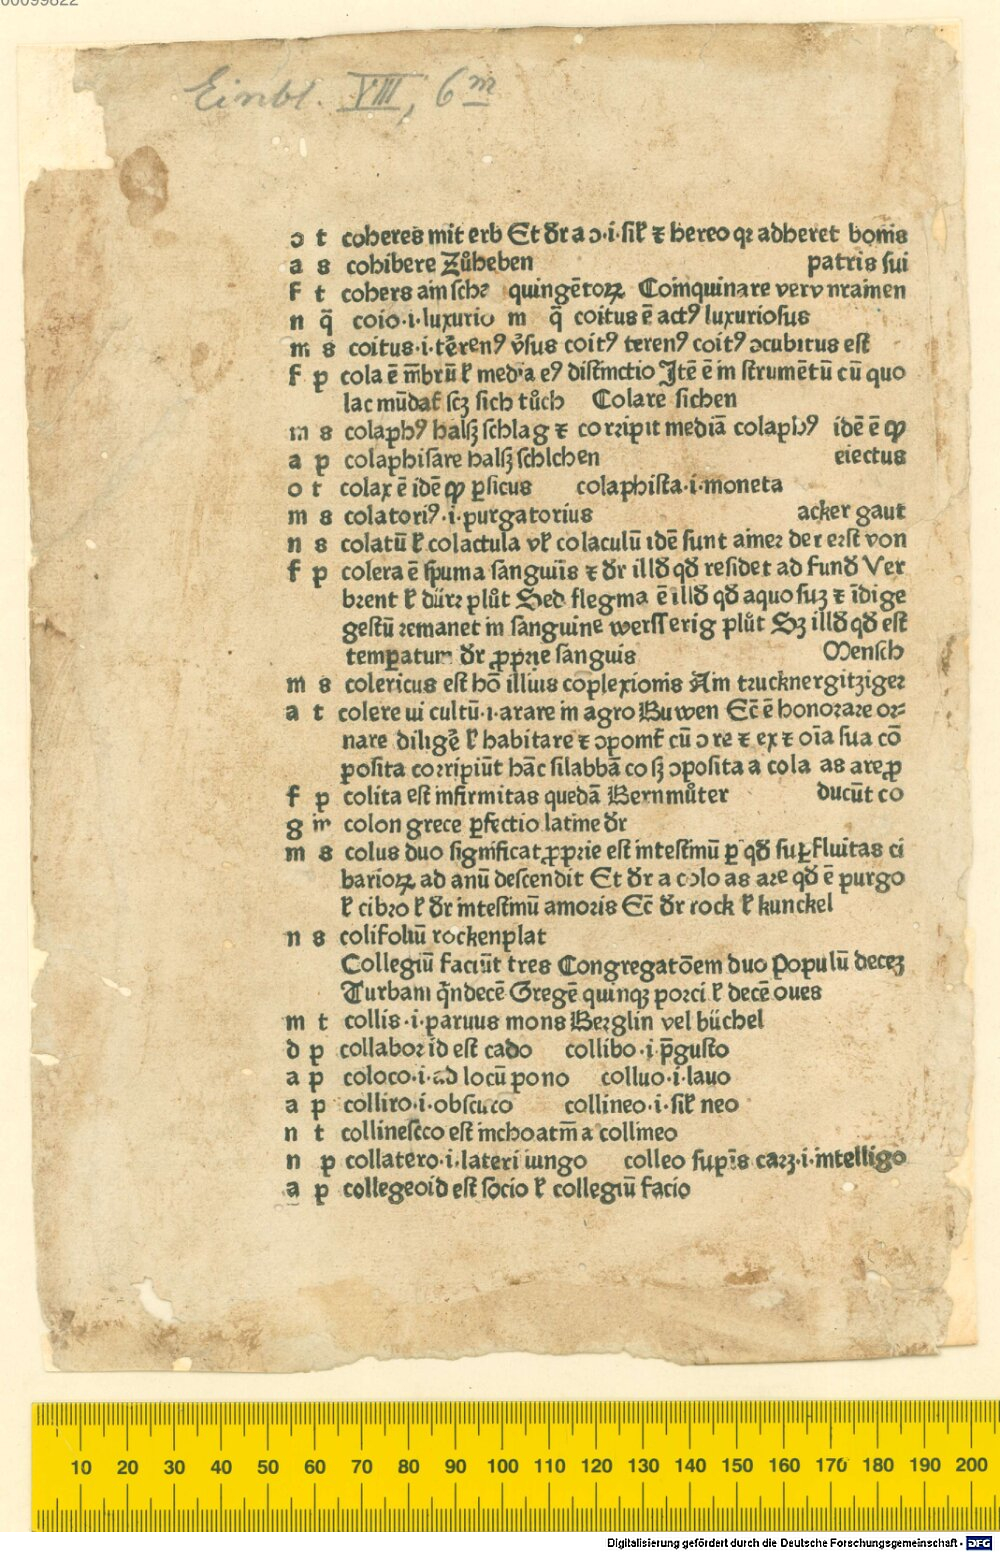 00099822
Einbl. VIII, 6 m
ɔ t coheres mit erb Et đr a ɔ·i·silꝭ ⁊ hereo qꝛ adheret bonis
a s cohibere Zůheben patris sui
f t cohers am sche quingētoꝝ Coinquinare vero nramen
n q̄ coio·i·luxurio m q̄ coitus ē actꝰ luxuriosus
m s coitus·i·tērenꝰ v̓sus coitꝰ terenꝰ coitꝰ ɔcubitus est
f p cola ē m̄brū ł media eꝰ distinctio Itē ē in strumētū cū quo
lac mūdat̄ scꝫ sich tůch Colare sichen
m s colaphꝰ halsʒ schlag ⁊ corripit mediā colaphꝰ idē ē ꝙ
a p colaphisare halsʒ schlchen eiectus
o t colax ē idē ꝙ ꝑsicus colaphista·i·moneta
m s colatoriꝰ·i·purgatorius acker gaut
n s colatū ł colactula vł colaculū idē sunt ainer der erst von
f p colera ē spuma sanguīis ⁊ đr illđ qđ residet ad funđ Ver
brent ł dürr plůt Sed flegma ē illđ qđ aquosuʒ ⁊ īdige
gestū remanet in sanguine wersserig plůt Sʒ illđ qđ est
temꝑatum đr ꝓprie sanguis Mensch
m s colericus est hō illius coplexionis Ain trucknergitziger
a t colere ui cultū·i·arare in agro Buwen Ec̄ ē honorare or⸗
nare diligē ł habitare ⁊ ɔpomt̄ cū ɔ re ⁊ ex ⁊ oīa sua cō
posita corripiūt hāc silabbā co sʒ ɔposita a cola as are ꝓ
f p colita est infirmitas quedā Bernmůter ducūt co
g in colon grece ꝑfectio latine đr
m s colus duo significat ꝓprie est intestinū ꝑ qđ suꝑfluitas ci
barioꝝ ad anū descendit Et đr a colo as are qđ ē purgo
ł cibro ł đr intestinū amoris Ec̄ đr rock ł kunckel
n s colifoliū rockenplat
Collegiū faciūt tres Congregatōem duo Populū deceʒ
Turbam q̄ndecē Gregē quinqʒ porci ł decē oues
m t collis·i·paruus mons Berglin vel büchel
d p collabor id est cado collibo·i·p̄gusto
a p coloco·i·ad locū pono colluo·i·lauo
a p colliro·i·obscuco collineo·i·silꝭ neo
n t collinesco est inchoatm̄ a collineo
n p collatero·i·lateri iungo colleo suꝑis carʒ·i·intelligo
a p collegeo id est socio ł collegiū facio
10 20 30 40 50 60 70 80 90 100 110 120 130 140 150 160 170 180 190 200
Digitalisierung gefördert durch die Deutsche Forschungsgemeinschaft - DFG